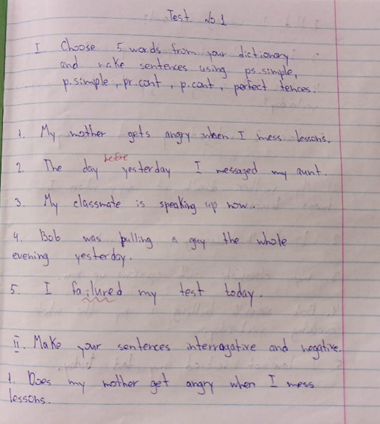 Test №1
I Choose 5 words from your dictionary
and make sentences using ps.simple,
p.simple, pr.cont, p.cont, perfect tences.
1. My mother gets angry when I mess lessons.
2. The day before yesterday I messaged my aunt.
3. My classmate is speaking up now.
4. Bob was pulling a guy the whole
evening yesterday.
5. I failured my test today.
ii. Make your sentences interrogative and negative.
1. Does my mother get angry when I mess
lessons.